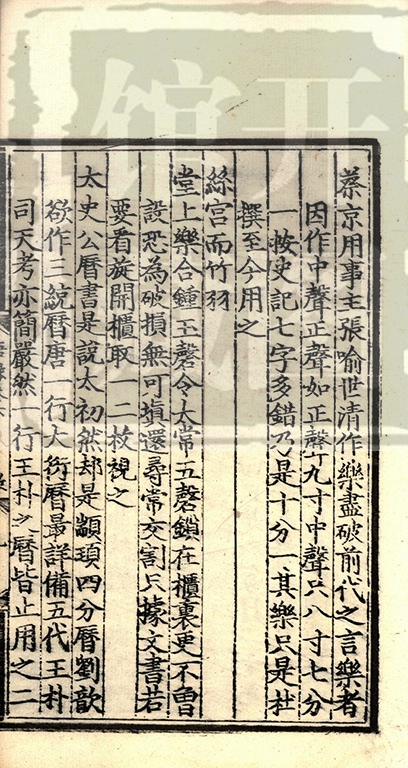 蔡京用事主張喻世清作樂盡破前代之言樂者
因作中聲正聲如正聲九寸中聲只八寸七分
一按史記七字多錯乃是十分一其樂只是杜
撰至今用之
絲宮而竹羽
堂上樂合鍾玉磬今太常玉磬鎖在櫃裏更不曾
設恐為破損無可塡還尋常交割只據文書若
要看旋開櫃取一二枚視之
太史公曆書是說太初然却是顓頊四分曆劉歆
欲作三統曆唐一行大衍曆最詳備五代王朴
司天考亦簡嚴然一行王朴之曆皆止用之二